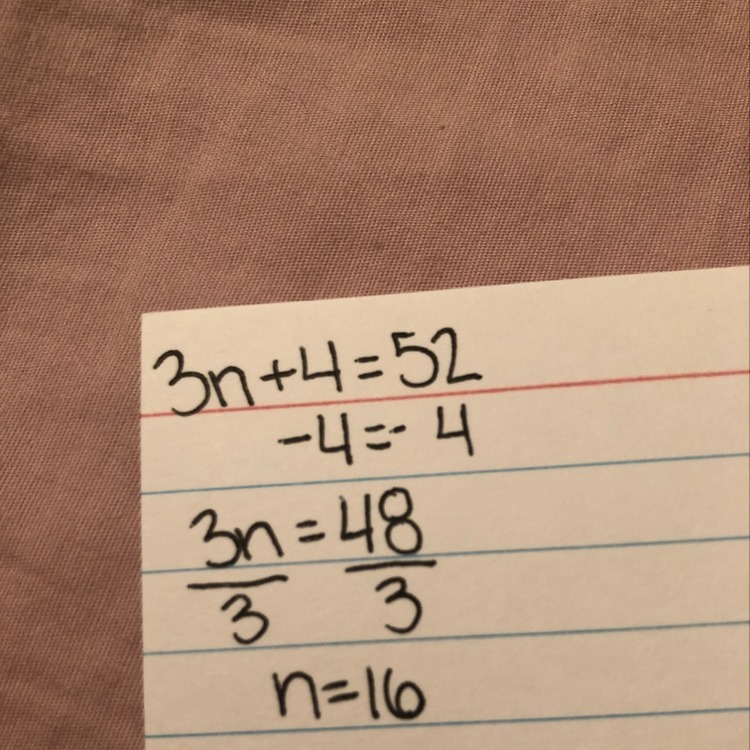 3n+4=52
-4=- 4
3n=48
3 3
n=16